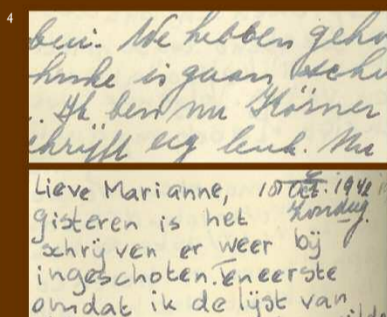 4
ben. We hebben geho
hnke is gaan schu
.. Ik ben nu Körner
chrijft erg leuk. Nu
Lieve Marianne, 10 Oct. 1942
Zondag.
gisteren is het
schrijven er weer bij
ingeschoten. Ten eerste
omdat ik de lijst van